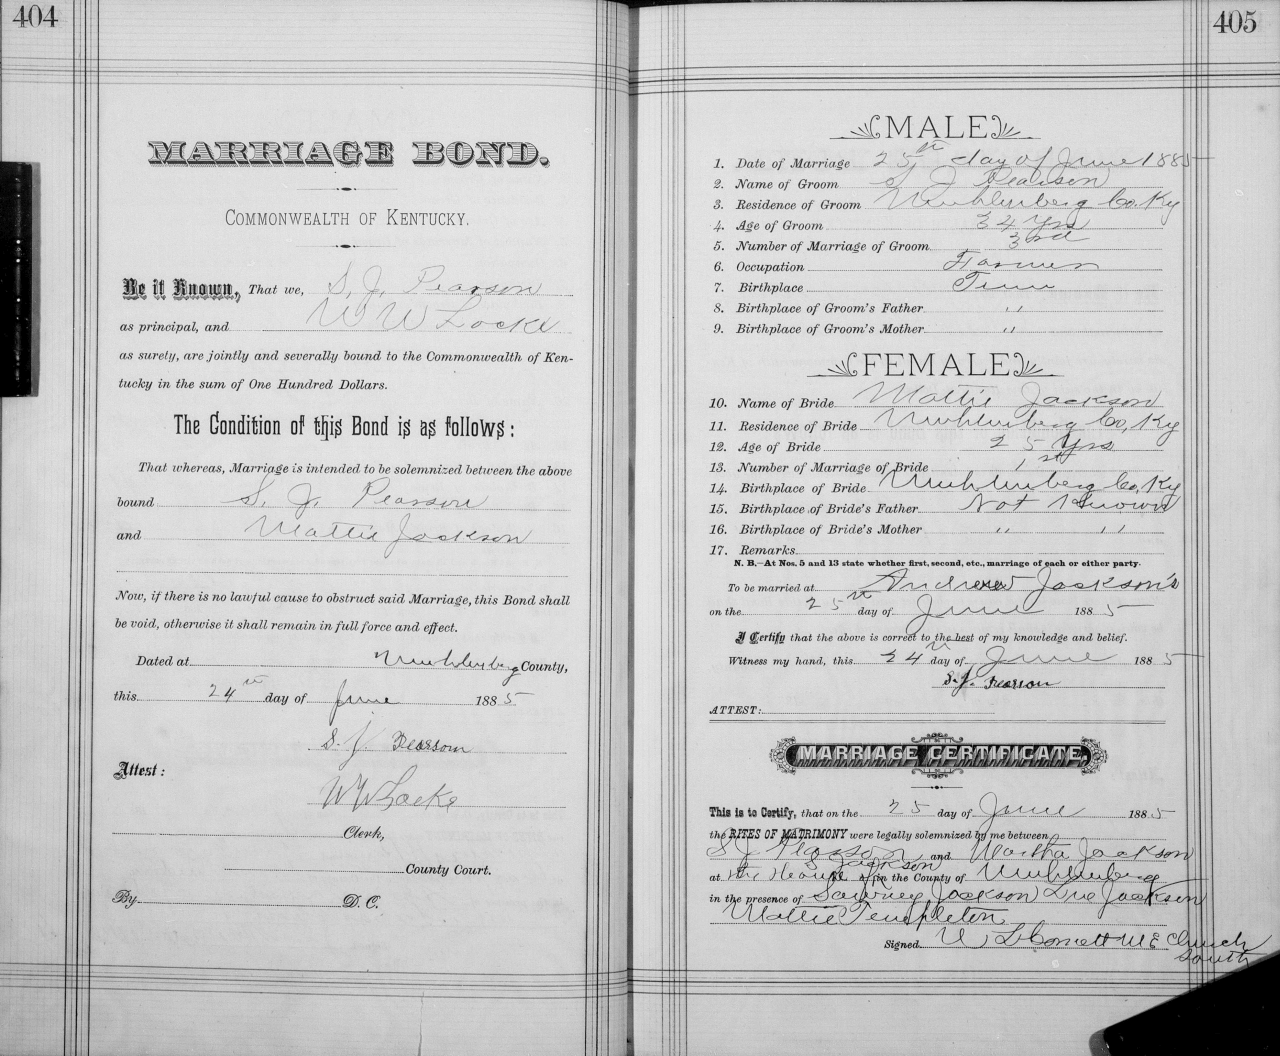 404
MARRIAGE BOND.
COMMONWEALTH OF KENTUCKY.
Be it Known, That we, S. J. Pearson
as principal, and W W Locke
as surety, are jointly and severally bound to the Commonwealth of Ken-
tucky in the sum of One Hundred Dollars.
The Condition of this Bond is as follows:
That whereas, Marriage is intended to be solemnized between the above
bound S. J. Pearson
and Mattie Jackson
Now, if there is no lawful cause to obstruct said Marriage, this Bond shall
be void, otherwise it shall remain in full force and effect.
Dated at Muhlenberg County,
this 24th day of June 1885
S. J. Pearson
Attest:
W W Locke
Clerk,
County Court.
By D. C.
405
MALE
1. Date of Marriage 25th day of June 1885
2. Name of Groom S J Pearson
3. Residence of Groom Muhlenberg Co. Ky
4. Age of Groom 34 Yrs
5. Number of Marriage of Groom 3rd
6. Occupation Farmer
7. Birthplace Tenn
8. Birthplace of Groom's Father " "
9. Birthplace of Groom's Mother " "
FEMALE
10. Name of Bride Mattie Jackson
11. Residence of Bride Muhlenberg Co, Ky
12. Age of Bride 25 Yrs
13. Number of Marriage of Bride 1st
14. Birthplace of Bride Muhlenberg Co, Ky
15. Birthplace of Bride's Father Not Known
16. Birthplace of Bride's Mother " " " "
17. Remarks
N. B.—At Nos. 5 and 13 state whether first, second, etc., marriage of each or either party.
To be married at Andrew Jackson's
on the 25th day of June 1885
I Certify that the above is correct to the best of my knowledge and belief.
Witness my hand, this 24th day of June 1885
S. J. Pearson
ATTEST:
MARRIAGE CERTIFICATE.
This is to Certify, that on the 25 day of June 1885
the RITES OF MATRIMONY were legally solemnized by me between
S J Pearson and Martha Jackson
at the House of Jackson in the County of Muhlenberg
in the presence of Jackson Jackson
Mollie Templeton
Signed W L M E Church
South